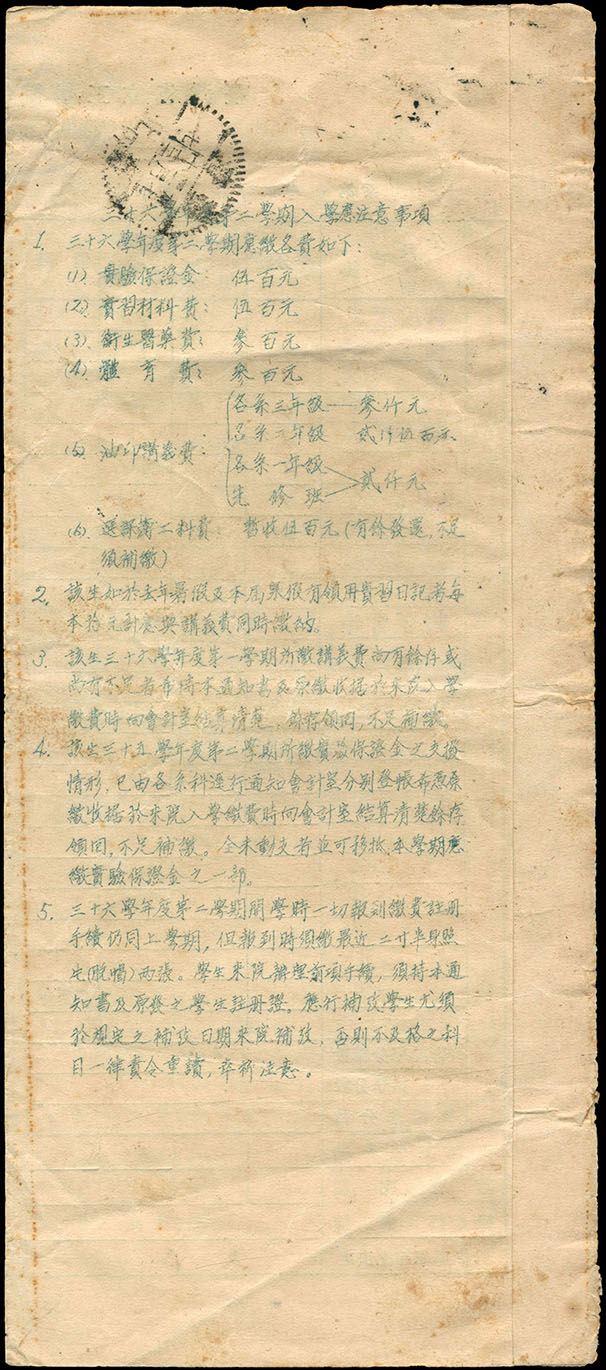 三十六學 第二學期入學應注意事項
1. 三十六學年度第二學期應繳各費如下：
(1). 實驗保證金： 伍百元
(2). 實習材料費： 伍百元
(3). 衛生醫藥費： 參百元
(4). 體育費： 參百元
(5). 油印講義費：
各系三年級——參仟元
各系二年級 貳仟伍百元
各系一年級
先修班
貳仟元
(6). 選課 費： 暫收伍百元(有餘發還,不足
須補繳)
2. 該生如於去年暑假及本屆寒假有領用實習日記者每
本 元計應與講義費同時繳納。
3. 該生三十六學年度第一學期所繳講義費尚有餘存或
尚有不足者希持本通知書及原繳收据於來院入學
繳費時向會計室結算清楚，餘存領回,不足補繳。
4. 該生三十五學年度第二學期所繳實驗保證金之支撥
情形,已由各系科逕行通知會計室分別登帳希 原
繳收据於來院入學繳費時向會計室結算清楚餘存
領回,不足補繳。全未動支者並可移抵,本學期應
繳實驗保證金之一部。
5. 三十六學年度第二學期開學時一切報到繳費註冊
手續仍同上學期,但報到時須繳最近二寸半身照
片(脫帽)兩張。學生來院辦理前項手續,須持本通
知書及原發之學生註冊證。應行補攷學生尤須
於規定之補攷日期來院補攷,否則不及格之科
目一律責令重讀, 希注意。